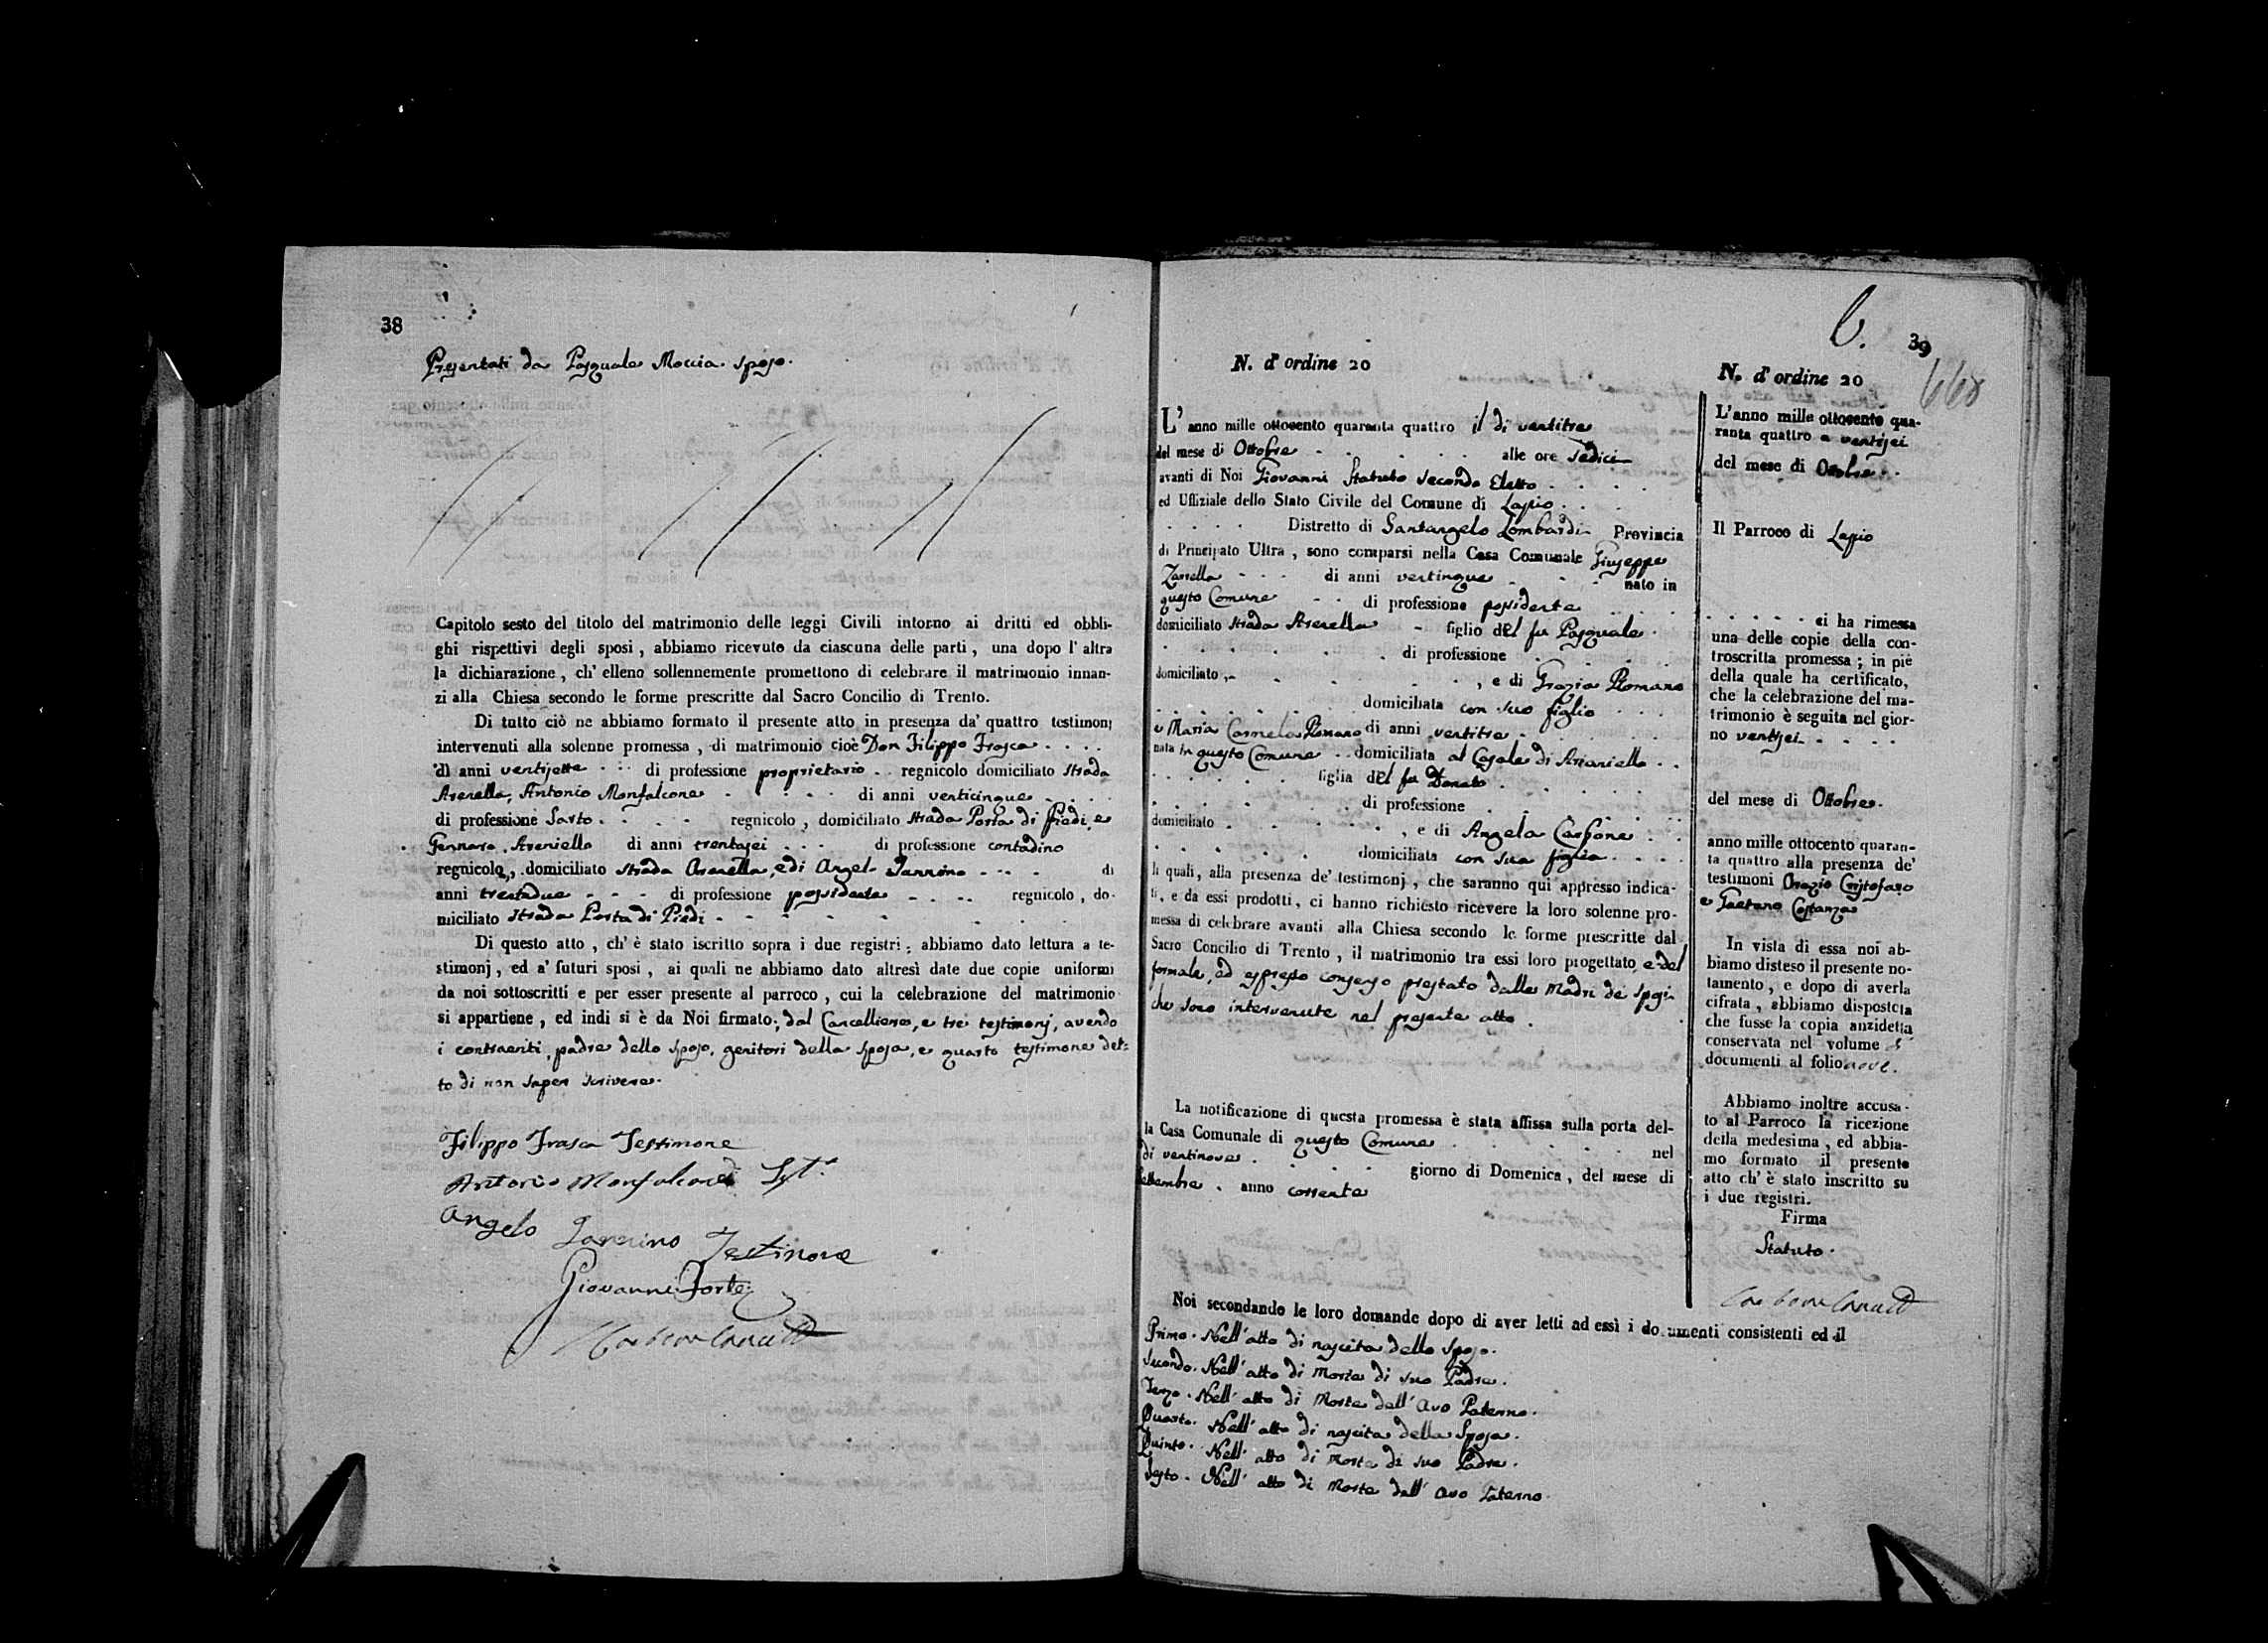 38
Presentati da Pasquale Moccia sposo.
Capitolo sesto del titolo del matrimonio delle leggi Civili intorno ai dritti ed obbli-
ghi rispettivi degli sposi, abbiamo ricevuto da ciascuna delle parti, una dopo l'altra
la dichiarazione, ch'elleno sollennemente promettono di celebrare il matrimonio innan-
zi alla Chiesa secondo le forme prescritte dal Sacro Concilio di Trento.
Di tutto ciò ne abbiamo formato il presente atto in presenza da' quattro testimonj
intervenuti alla solenne promessa, di matrimonio cioè Don Filippo Frasca ....
di anni ventisette ... di professione proprietario .. regnicolo domiciliato Strada
Arenella, Antonio Monfalcone . . . . di anni venticinque ....
di professione Sarto . . . . regnicolo, domiciliato Strada Porta di Piedi, e
Gennaro Areniello di anni trentasei ... di professione contadino
regnicolo, domiciliato Strada Arenella, e di Angelo Iannino .... di
anni trentadue .... di professione possidente .... regnicolo, do-
miciliato Strada Porta di Piedi - - - - -
Di questo atto, ch'è stato iscritto sopra i due registri; abbiamo dato lettura a te-
stimonj, ed a' futuri sposi, ai quali ne abbiamo dato altresì date due copie uniformi
da noi sottoscritti e per esser presente al parroco, cui la celebrazione del matrimonio
si appartiene, ed indi si è da Noi firmato; dal Cancelliere, e tre testimonj, avendo
i contraenti, padre dello sposo, genitori della sposa, e quarto testimone det=
to di non saper scrivere.
Filippo Frasca Testimone
Antonio Monfalcone
Angelo Iannino Testimone
Giovanni Forte
39
N. d'ordine 20
L'anno mille ottocento quaranta quattro il dì ventitre
del mese di Ottobre . . . . . alle ore sedici
avanti di Noi Giovanni Statuto Secondo Eletto . . . .
ed Uffiziale dello Stato Civile del Comune di Lapio . . .
. . . . Distretto di Santangelo Lombardi Provincia
di Principato Ultra, sono comparsi nella Casa Comunale Giuseppe
Zarrella - - - di anni venticinque . . . nato in
questo Comune - - di professione possidente
domiciliato Strada Arenella - figlio del fu Pasquale .
. . . . . . di professione . . . .
domiciliato, - . . . . , e di Grazia Romano
. . . . . . domiciliata con suo figlio . . .
e Maria Carmela Romano di anni ventitre . . .
nata in questo Comune .. domiciliata al Casale di Arianiello ..
. . . . . figlia del fu Donato . . . .
. . . . . di professione . . . .
domiciliato . . . . . , e di Angela Carbone . .
. . . . . domiciliata con sua figlia ....
li quali, alla presenza de' testimonj, che saranno qui appresso indica-
ti, e da essi prodotti, ci hanno richiesto ricevere la loro solenne pro-
messa di celebrare avanti alla Chiesa secondo le forme prescritte dal
Sacro Concilio di Trento, il matrimonio tra essi loro progettato, e del
formale, ed espresso consenso prestato dalle Madri de' sposi
che sono intervenute nel presente atto.
La notificazione di questa promessa è stata affissa sulla porta del-
la Casa Comunale di questo Comune . . . . nel
dì ventinove . . . . giorno di Domenica, del mese di
Settembre . anno corrente
Noi secondando le loro domande dopo di aver letti ad essi i documenti consistenti ed il
Primo. Nell'atto di nascita dello sposo.
Secondo. Nell'atto di Morte di suo Padre.
Terzo. Nell'atto di Morte dell'Avo Paterno.
Quarto. Nell'atto di nascita della Sposa.
Quinto. Nell'atto di Morte di suo Padre.
Sesto. Nell'atto di Morte dell'Avo Paterno.
N. d'ordine 20
L'anno mille ottocento qua-
ranta quattro a ventisei
del mese di Ottobre . .
Il Parroco di Lapio
. . . . . ci ha rimessa
una delle copie della con-
troscritta promessa; in piè
della quale ha certificato,
che la celebrazione del ma-
trimonio è seguita nel gior-
no ventisei . . . .
del mese di Ottobre.
anno mille ottocento quaran-
ta quattro alla presenza de'
testimoni Orazio Cristofaro
e Gaetano Costanza
In vista di essa noi ab-
biamo disteso il presente no-
tamento, e dopo di averla
cifrata, abbiamo disposto
che fusse la copia anzidetta
conservata nel volume
documenti al folio nove.
Abbiamo inoltre accusa-
to al Parroco la ricezione
della medesima, ed abbia-
mo formato il presente
atto ch'è stato inscritto su
i due registri.
Firma
Statuto.